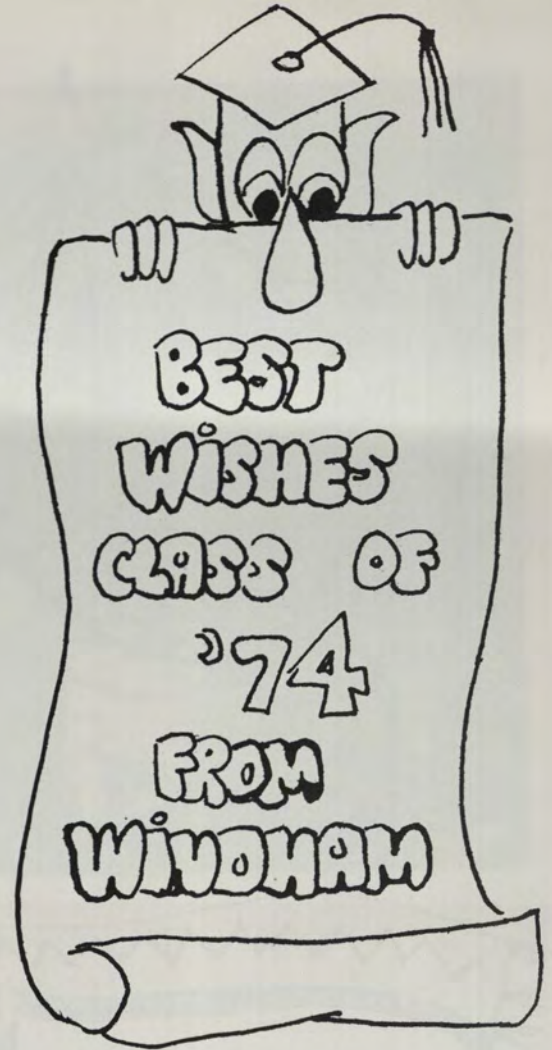 BEST
WiSHES
CLASS OF
'74
FROM
WiNDHAM